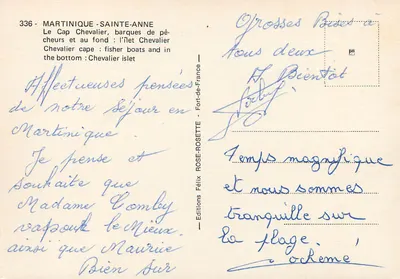 336 - MARTINIQUE - SAINTE-ANNE
Le Cap Chevalier, barques de pê-
cheurs et au fond : l'îlet Chevalier
Chevalier cape : fisher boats and in
the bottom : Chevalier islet
Affectueuses pensées
de notre séjour en
Martinique.
Je pense et
souhaite que
Madame Comby
va pour le Mieux.
ainsi que Maurice
Bien sur
— Editions Félix ROSE-ROSETTE - Fort-de-France —
Grosses Bises à
tous deux
A Bientôt
Temps magnifique
et nous sommes
tranquille sur
la plage.